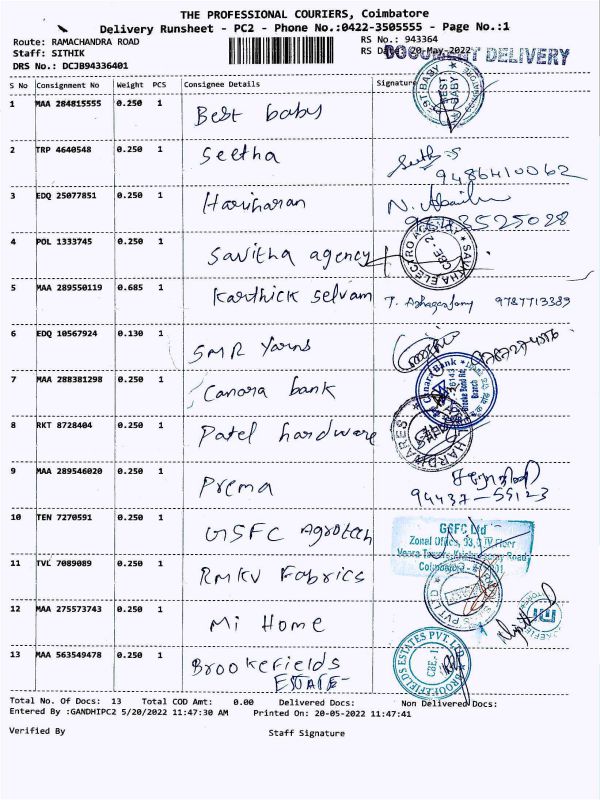 THE PROFESSIONAL COURIERS, Coimbatore
Delivery Runsheet - PC2 - Phone No.:0422-3505555 - Page No.:1
Route: RAMACHANDRA ROAD
RS No.: 943364
Staff: SITHIK
RS Da 20-May-2022
DOCUMENT DELIVERY
DRS No.: DCJB94336401
S No Consignment No Weight PCS Consignee Details Signature
1 MAA 284815555 0.250 1 Best baby
BEST BABY
2 TRP 4640548 0.250 1 Seetha
9486410062
3 EDQ 25077851 0.250 1 Hariharan N.
4 POL 1333745 0.250 1 Savitha agency
CBE - 2
5 MAA 289550119 0.685 1 Karthick selvam T. 9787713389
6 EDQ 10567924 0.130 1 SMR Yarns
7 MAA 288381298 0.250 1 Canara bank
Canara Bank
Branch
8 RKT 8728404 0.250 1 Patel hardware
HARDWARES
9 MAA 289546020 0.250 1 Prema
94437-55123
10 TEN 7270591 0.250 1 GSFC Agrotech
GSFC Ltd
Zonal Office, 93, IV Floor
Road
11 TVL 7089089 0.250 1 RMKV Fabrics
PVT LTD
12 MAA 275573743 0.250 1 Mi Home
MI
13 MAA 563549478 0.250 1 Brookefields
ESTATE
BROOKEFIELDS ESTATES PVT. LTD.
CBE.-1
Total No. Of Docs: 13 Total COD Amt: 0.00 Delivered Docs: Non Delivered Docs:
Entered By :GANDHIPC2 5/20/2022 11:47:30 AM Printed On: 20-05-2022 11:47:41
Verified By Staff Signature